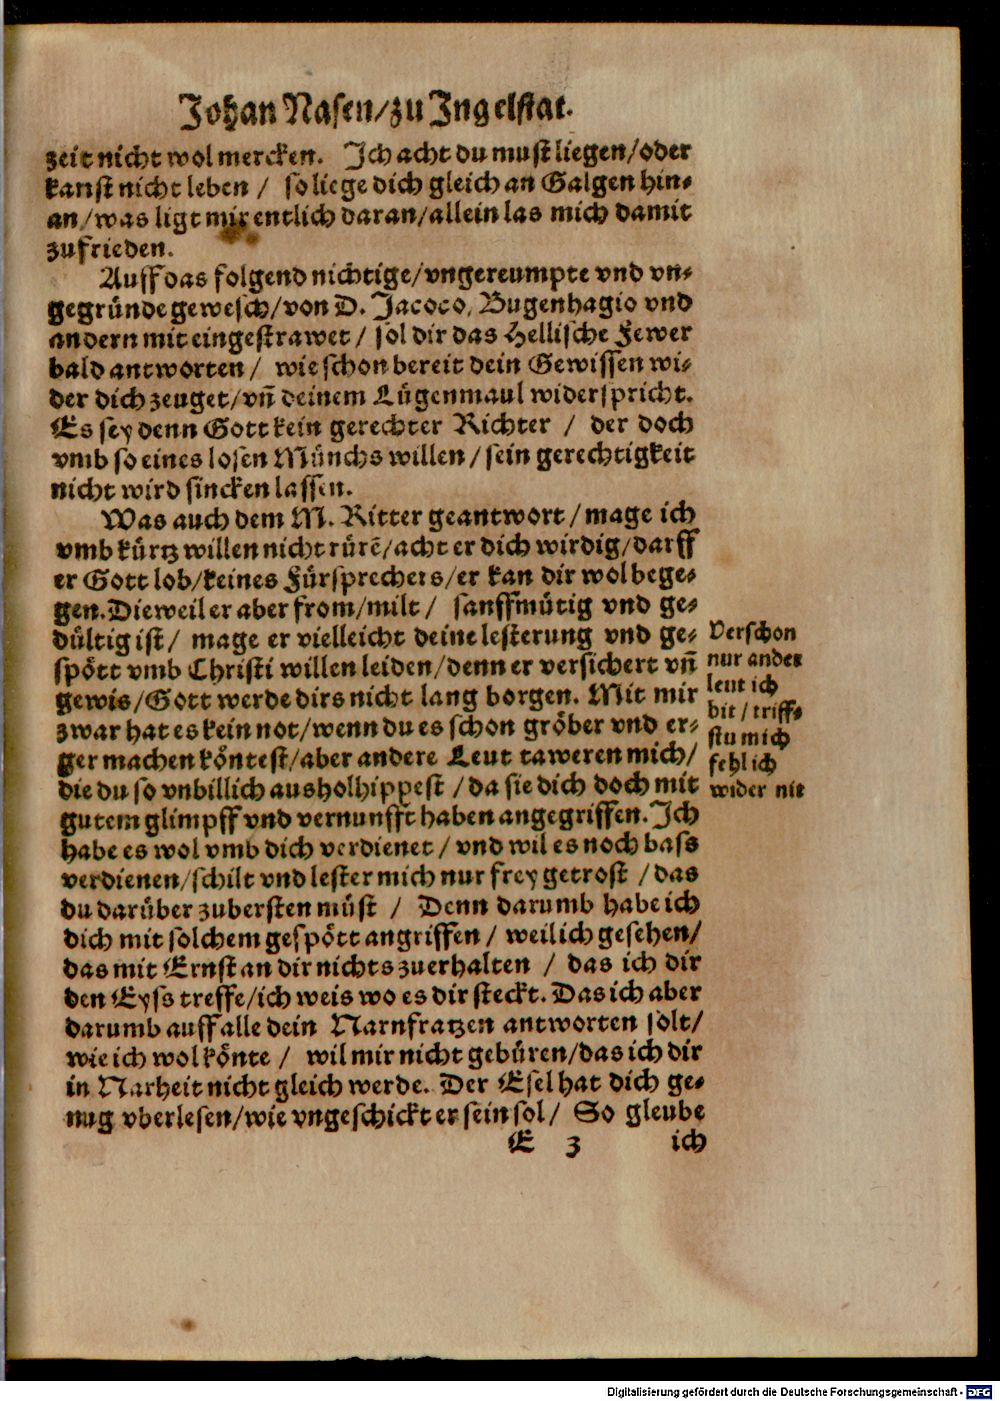 Johan Nasen/zu Jngelstat.
zeit nicht wol mercken. Jch acht du must liegen/oder
kanst nicht leben / so liege dich gleich an Galgen hin⸗
an/was ligt mir entlich daran/allein las mich damit
zufrieden.
Auff das folgend nichtige/vngereumpte vnd vn⸗
gegründe gewesch/von D. Jacoco, Bugenhagio vnd
andern mit eingestrawet / sol dir das Hellische Fewer
bald antworten / wie schon bereit dein Gewissen wi⸗
der dich zeuget/vñ deinem Lügenmaul widerspricht.
Es sey denn Gott kein gerechter Richter / der doch
vmb so eines losen Münchs willen/sein gerechtigkeit
nicht wird sincken lassen.
Was auch dem M. Ritter geantwort/mage ich
vmb kürtz willen nicht rürẽ/acht er dich wirdig/darff
er Gott lob/keines Fürsprechers/er kan dir wol bege⸗
gen. Dieweil er aber from/milt / sanffmütig vnd ge⸗
dültig ist/ mage er vielleicht deine lesterung vnd ge⸗
spött vmb Christi willen leiden/denn er versichert vñ
gewis/Gott werde dirs nicht lang borgen. Mit mir
zwar hat es kein not/wenn du es schon gröber vnd er⸗
ger machen köntest/aber andere Leut taweren mich/
die du so vnbillich ausholhippest /da sie dich doch mit
gutem glimpff vnd vernunfft haben angegriffen. Jch
habe es wol vmb dich verdienet / vnd wil es noch bass
verdienen/schilt vnd lester mich nur frey getrost /das
du darüber zubersten müst / Denn darumb habe ich
dich mit solchem gespött angriffen / weil ich gesehen/
das mit Ernst an dir nichts zuerhalten / das ich dir
den Eyss treffe/ich weis wo es dir steckt. Das ich aber
darumb auff alle dein Narnfratzen antworten solt/
wie ich wol könte / wil mir nicht gebüren/das ich dir
in Narheit nicht gleich werde. Der Esel hat dich ge⸗
nug vberlesen/wie vngeschickt er sein sol/ So gleube
E 3 ich
Verschon
nur ander
leut ich
bit / triff⸗
stu mich
fehl ich
wider nit
Digitalisierung gefördert durch die Deutsche Forschungsgemeinschaft - DFG